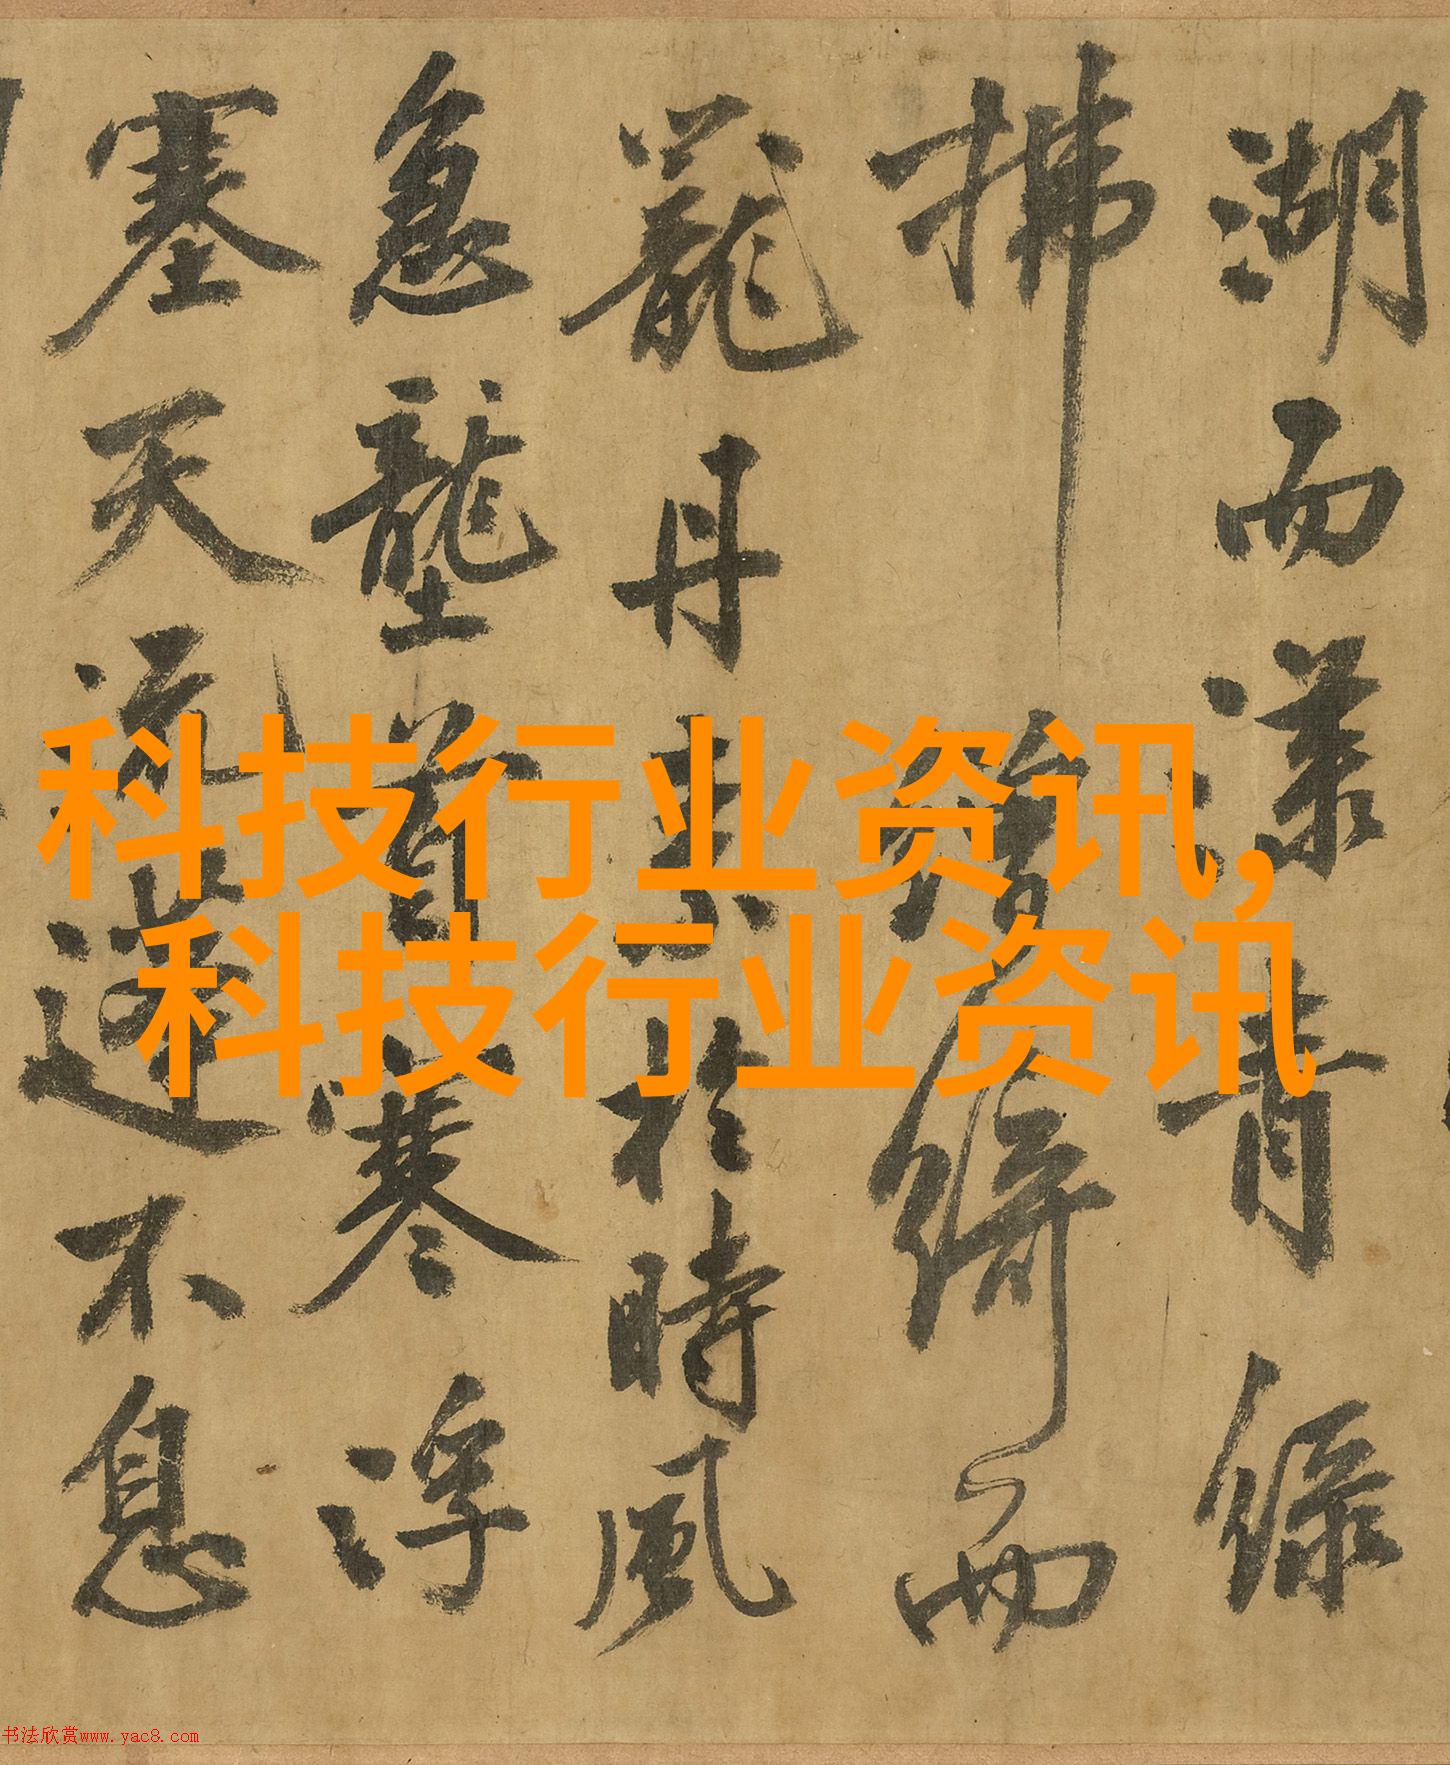 科技行业资讯,
科技行业资讯
湖而漾青綠
拂繒綺而
籠丹其於時風
急壟首寒浮
塞天流蓬不息
书法欣赏www.yac8.com